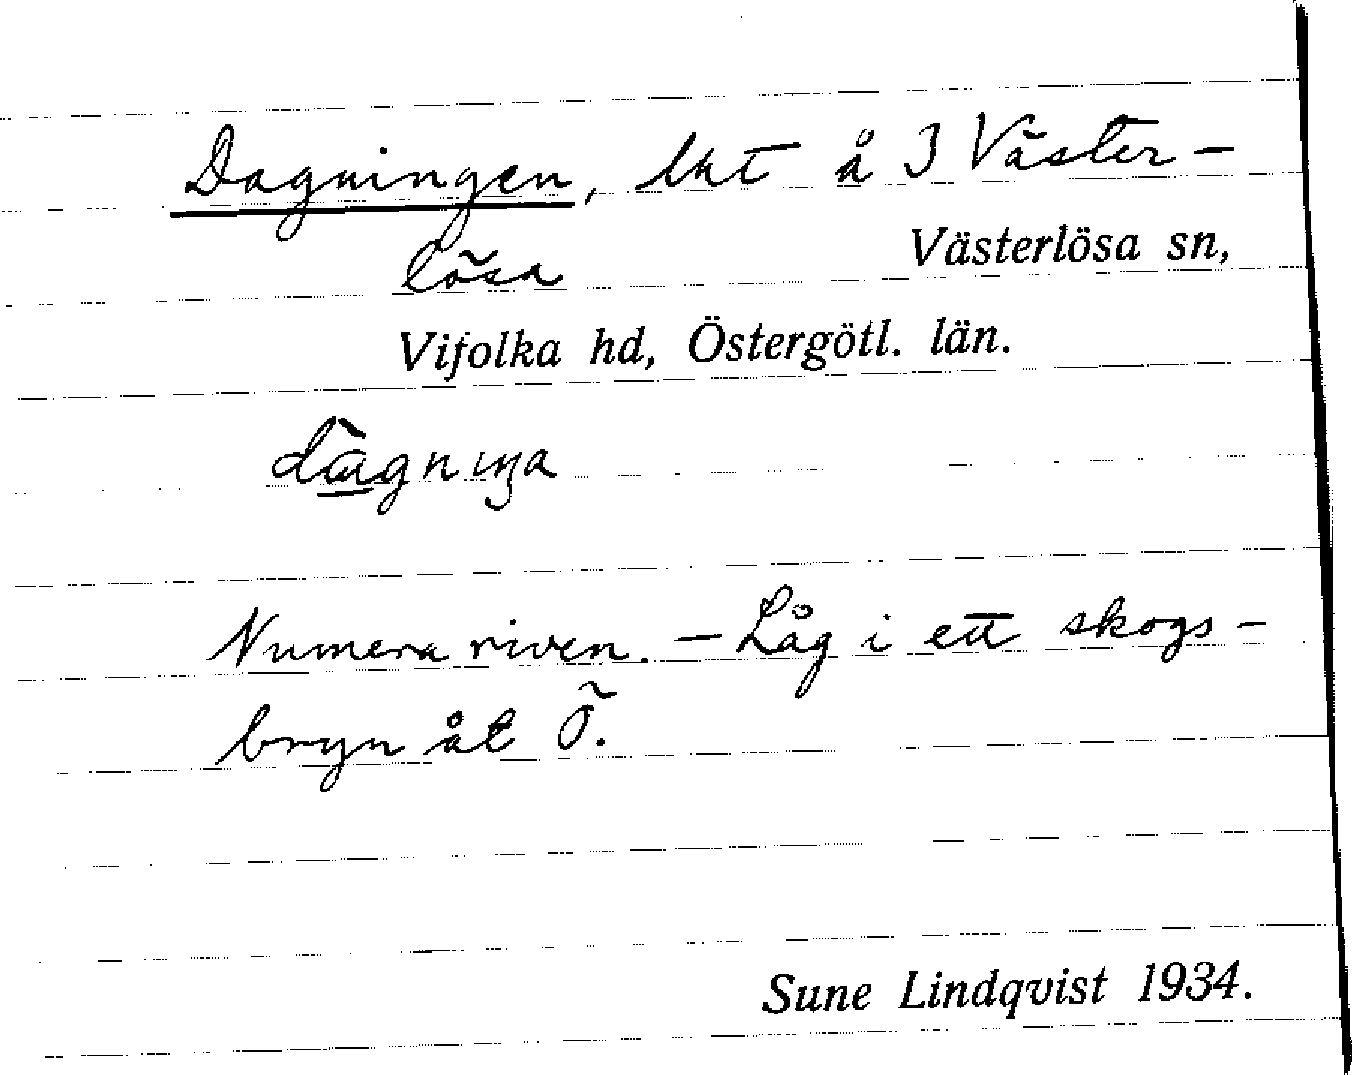 Dagningen, lht å I Väster-
lösa
Västerlösa sn,
Vifolka hd, Östergötl. län.
Numera riven. - Låg i ett skogs-
bryn åt Ö.
Sune Lindqvist 1934.